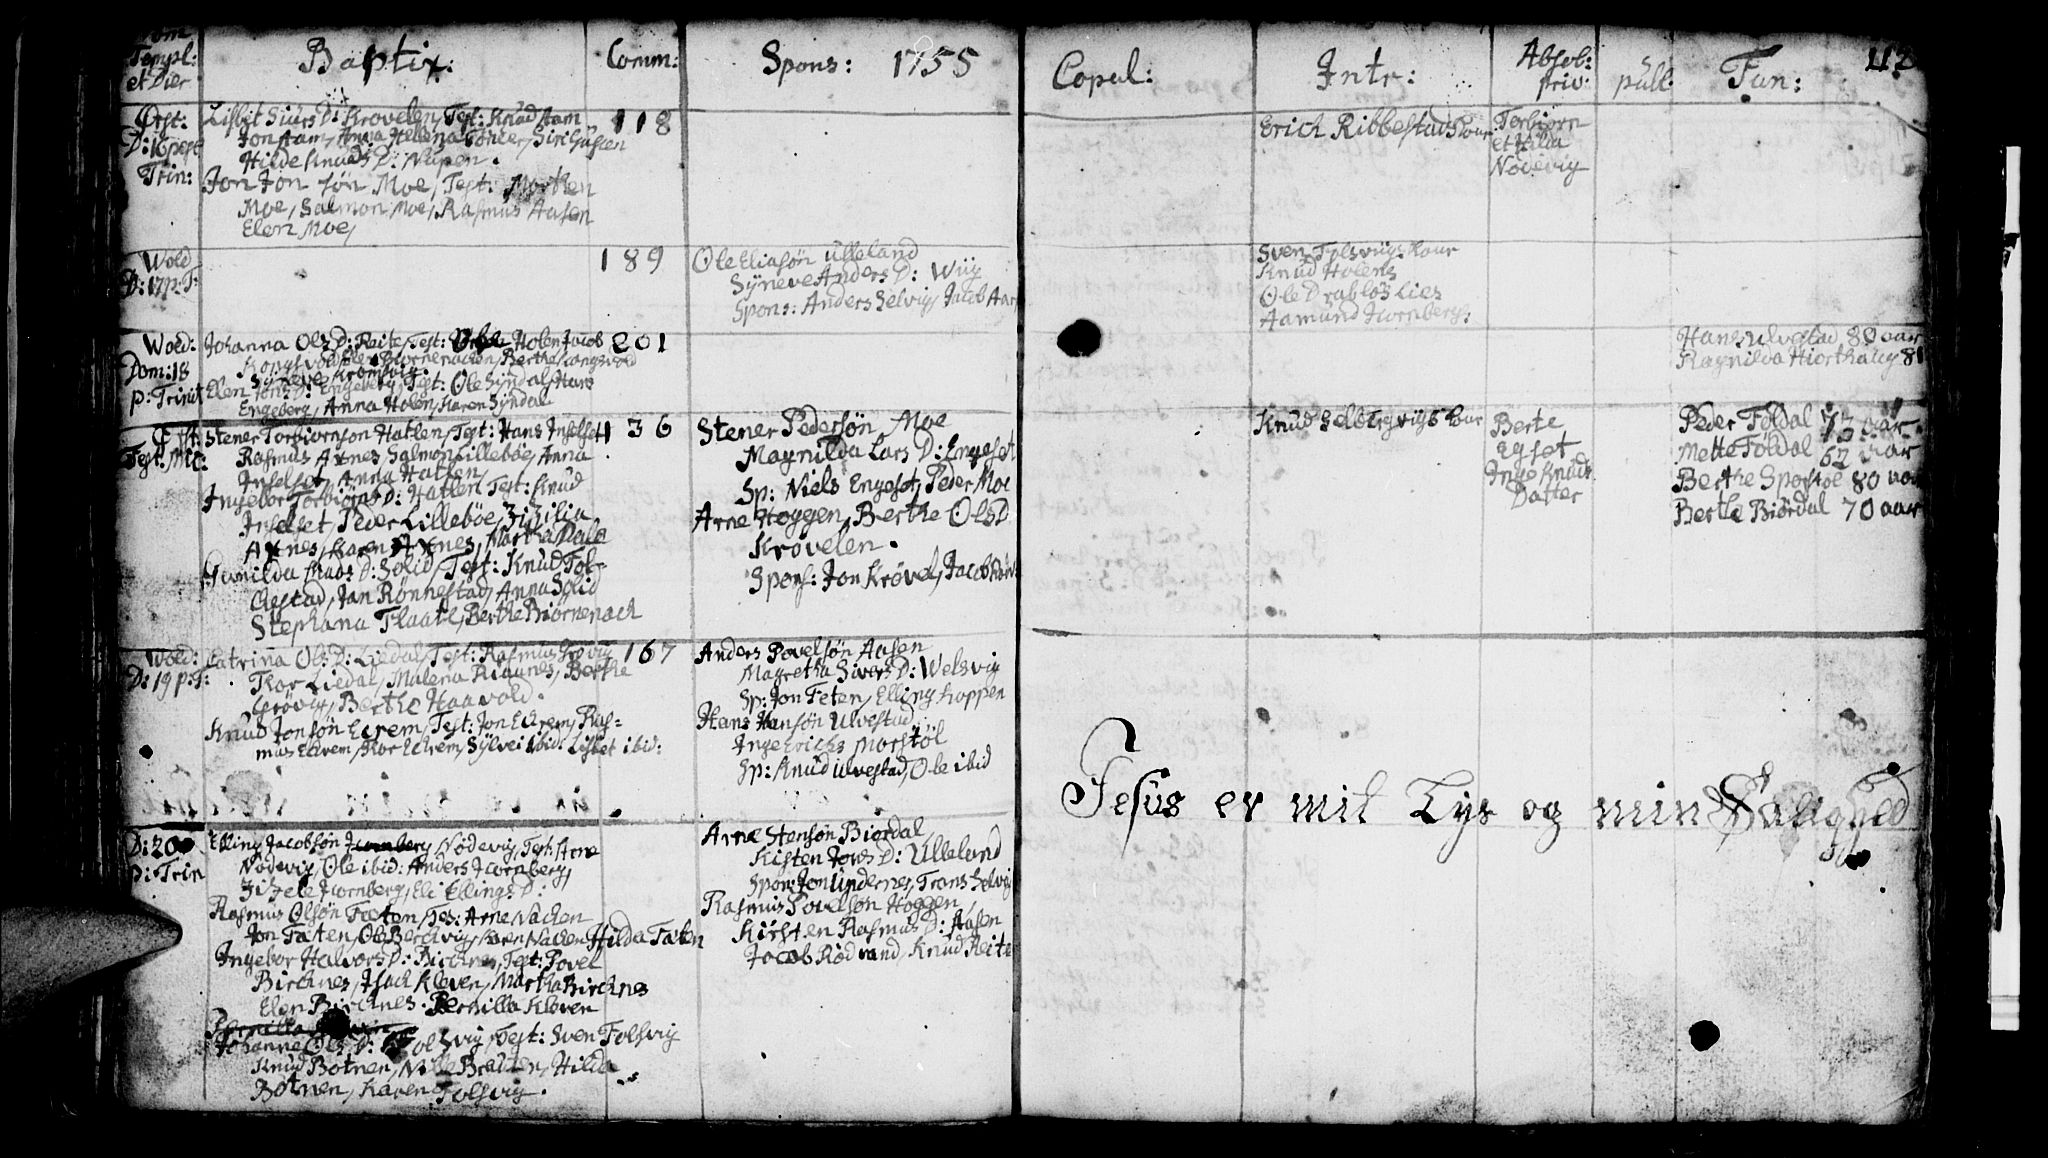 Templ:
et Dier
Baptiz:
Comm:
Spons: 1755
Copul:
Intr:
Absol:
priv:
publ:
Fun:
Ørst:
D: 16 pest
Trin:
Lisbit Siurs D: Krovelen, Test: Knud Aam
Jon Aam, Anna Hellena
Hilde Knuds D: Nupen.
Jon Jon søn Moe, Test: Morthen
Moe, Salmon Moe, Rasmus Aasen
Elen Moe,
118
Erich Ribbestads Kour
Torbiørn
et Hilda
Nøvevig
Wold
D: 17 p: T:
189
Ole Eliasøn Ulleland
Syneve Anders D: Wiig
Spons: Anders Selvig, Jacob Aar
Sven Folsvigs Kour
Knud Holens
Ole Drabløs Lies
Aamund Hornbergs
Wold:
Dom: 18
p: Trinit
Johanna Ols D: Reite, Test: Holen Jacob
Kongsvold, Elen Biørnenachen, Berthe Kongsvold
Syneve Kromsvig.
Elen Jons D: Engeberg, Test: Ole Syndal, Hans
Engeberg, Anna Holen, Karen Syndal
201
Hans Ulvestad 80 aar
Ragnilda Hiorthaug 81
Ørst:
Fest: Mic:
Stener Torbiornson Hatlen, Test: Hans Inselset
Rasmus Axnes Salmon Lillebøe, Anna
Inselset, Anna Hatlen,
Ingebor Torbiørns D: Hatlen, Test: Knud
Inselset, Peder Lillebøe, Zizilia
Axnes, Karen Axnes, Martha
Gunilda Knuds D: Solid, Test: Knud Tol-
Jan Rønnestad, Anna Solid
Stephana Flaatt, Berthe Biørnenach
136
Stener Pedersøn Moe
Magnilda Lars D: Engeset
Sp: Niels Engeset, Peder Moe
Arne Hoggen, Berthe Ols D.
Krøvelen.
Spons: Jon Krøvel, Jacob
Knud Kour
Berte
Egset
Inge Knuds
Datter
Peder Foldal 73 aar.
Mette Foldal 62 aar
Berthe 80 aar
Berthe Biørdal 70 aar
Wold:
D: 19 p: T:
Catrina Ols D: Liedal, Test: Rasmus Grøvig
Thor Liedal, Malena Riaanes, Berthe
Grøvig, Berthe Haavold.
Knud Jonsøn Ecrem, Test: Jon Ecrem, Ras-
mus Ecrem, Thor Ecrem, Sylvei ibid: Lisbet ibid:
167
Anders Povelsøn Aasen
Magretha Sivers D: Welsvig
Sp: Jon Feten, Elling Koppen
Hans Hansøn Ulvestad
Inge Erichs Morstøl
Sp: Knud Ulvestad, Ole ibid
Jesus er mit Lys og min Salighed
D: 20
p: Trin
Elling Jacobsøn Nødevig, Test: Arne
Nødevig, Ole ibid: Anders Hornberg,
Zizele Hornberg, Eli Ellings D:
Rasmus Olsøn Fæten, Tes: Arne Nachen
Jon Fæten, Ole Berchvig, Karen Nachen Hilda Fæten
Ingebor Halvors D: Birchnes, Test: Povel
Birchnes, Isach Kleven, Martha Birchnes
Elen Birchnes. Pernilla Kleven
Johanne Ols D: Folsvig, Test: Sven Folsvig
Knud Botnen, Nille Brauten, Hilda
Botnen, Karen Folsvig.
Arne Stensøn Biordal
Kisten Jons D: Ulleland
Spon: Jon Undernes, Trons Selvig
Rasmus Povelsøn Hoggen,
Kirsten Rasmus D: Aasen
Jacob Rødvand, Knud Reite